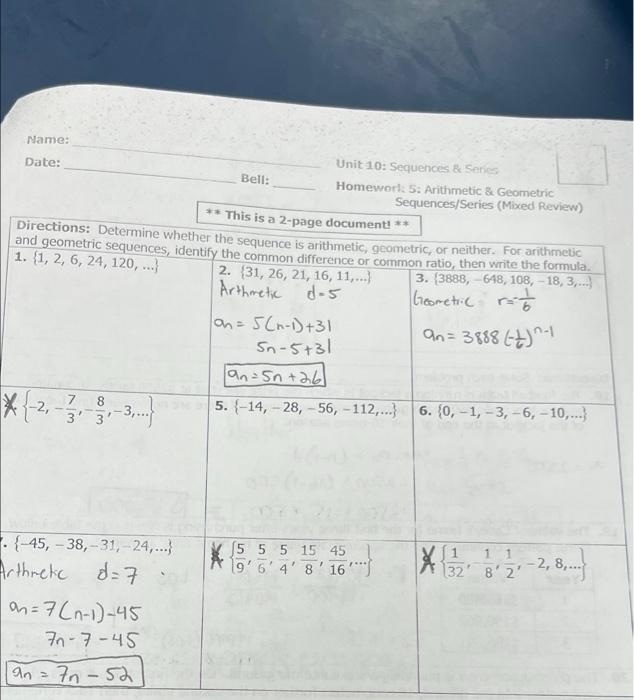 Name:
Date:
Bell:
Unit 10: Sequences & Series
Homework 5: Arithmetic & Geometric
Sequences/Series (Mixed Review)
** This is a 2-page document! **
Directions: Determine whether the sequence is arithmetic, geometric, or neither. For arithmetic
and geometric sequences, identify the common difference or common ratio, then write the formula.
1. {1, 2, 6, 24, 120, ...}
2. {31, 26, 21, 16, 11,...}
Arthmetic d=5
an = 5(n-1)+31
5n-5+31
an=5n+26
3. {3888, -648, 108, -18, 3,...}
Geometric r=-1/6
an = 3888(-1/6)^n-1
{-2, -7/3, -8/3, -3,...}
5. {-14, -28, -56, -112,...}
6. {0, -1, -3, -6, -10,...}
. {-45, -38, -31, -24,...}
Arthmetic d=7
an = 7(n-1)-45
7n-7-45
an = 7n-52
{5/9, 5/6, 5/4, 15/8, 45/16,...}
{1/32, -1/8, 1/2, -2, 8,...}